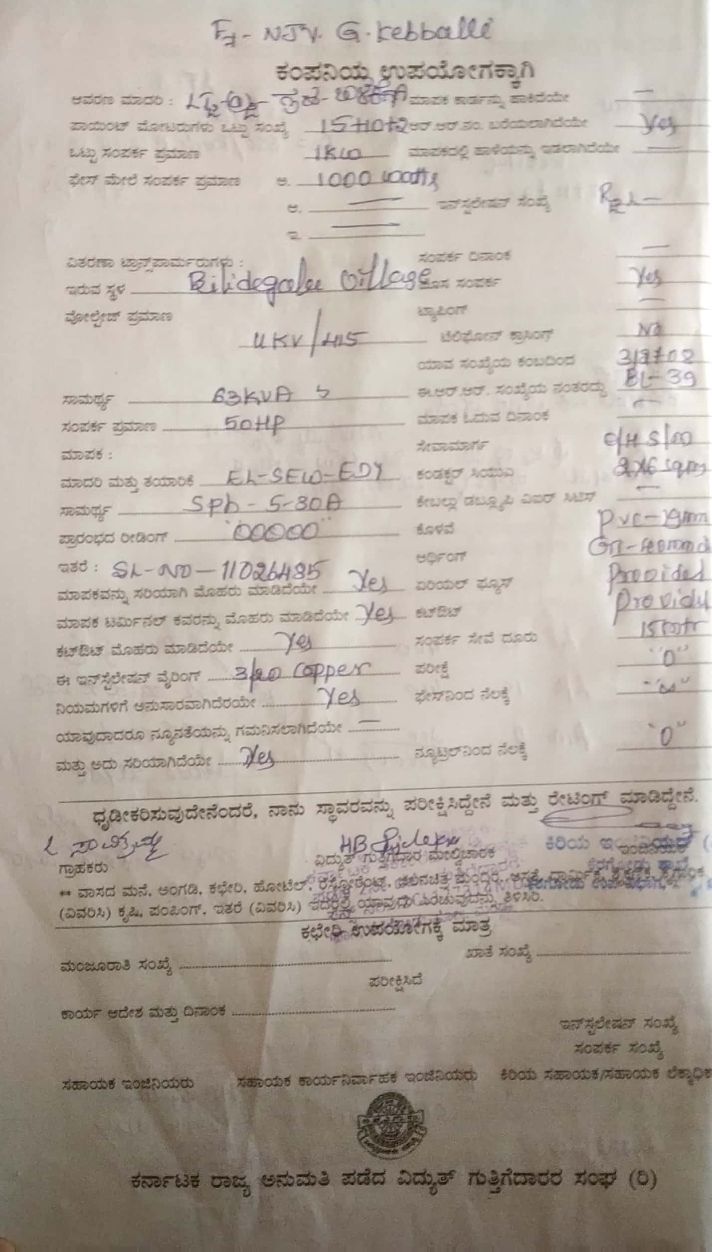 F1- NJY. G. Kebballi
ಕಂಪನಿಯ ಉಪಯೋಗಕ್ಕಾಗಿ
ಆವರಣ ಮಾದರಿ : ಮಾಪಕ ಕಾರ್ಡನ್ನು ಹಾಕಿದೆಯೇ —
ಪಾಯಿಂಟ್ ಮೋಟರುಗಳು ಒಟ್ಟು ಸಂಖ್ಯೆ ಆರ್.ಆರ್.ನಂ. ಬರೆಯಲಾಗಿದೆಯೇ Yes
ಒಟ್ಟು ಸಂಪರ್ಕ ಪ್ರಮಾಣ 1KW ಮಾಪಕದಲ್ಲಿ ಹಾಳೆಯನ್ನು ಇಡಲಾಗಿದೆಯೇ —
ಫೇಸ್ ಮೇಲೆ ಸಂಪರ್ಕ ಪ್ರಮಾಣ ಅ. 1000 Watts
ಆ. — ಇನ್‌ಸ್ಟಲೇಷನ್ ಸಂಖ್ಯೆ
ಇ. —
ವಿತರಣಾ ಟ್ರಾನ್ಸ್‌ಪಾರ್ಮರುಗಳು : ಸಂಪರ್ಕ ದಿನಾಂಕ —
ಇರುವ ಸ್ಥಳ Bilidegalu Village ಹೊಸ ಸಂಪರ್ಕ Yes
ವೋಲ್ಟೇಜ್ ಪ್ರಮಾಣ ಟ್ಯಾಪಿಂಗ್ —
11KV/415 ಟೆಲಿಫೋನ್ ಕ್ರಾಸಿಂಗ್ No
ಯಾವ ಸಂಖ್ಯೆಯ ಕಂಬದಿಂದ
ಸಾಮರ್ಥ್ಯ 63KVA ಈ.ಆರ್.ಆರ್. ಸಂಖ್ಯೆಯ ನಂತರದ್ದು BL-39
ಸಂಪರ್ಕ ಪ್ರಮಾಣ 50HP ಮಾಪಕ ಓದುವ ದಿನಾಂಕ —
ಮಾಪಕ : ಸೇವಾಮಾರ್ಗ
ಮಾದರಿ ಮತ್ತು ತಯಾರಿಕೆ EL-SEW-EDY ಕಂಡಕ್ಟರ್ ಸಿಯುವಿ
ಸಾಮರ್ಥ್ಯ SPh-5-30A ಕೇಬಲ್ಲು ಡಬ್ಲ್ಯೂಪಿ ವಿಐರ್ ಸಿಟಿಸ್ —
ಪ್ರಾರಂಭದ ರೀಡಿಂಗ್ "00000" ಕೊಳವೆ
ಇತರೆ : SL-NO-11026485 ಆರ್ಥಿಂಗ್
ಮಾಪಕವನ್ನು ಸರಿಯಾಗಿ ಮೊಹರು ಮಾಡಿದೆಯೇ Yes ಏರಿಯಲ್ ಫ್ಯೂಸ್ Provided
ಮಾಪಕ ಟರ್ಮಿನಲ್ ಕವರನ್ನು ಮೊಹರು ಮಾಡಿದೆಯೇ Yes ಕಟ್‌ಔಟ್ Provided
ಕಟ್‌ಔಟ್ ಮೊಹರು ಮಾಡಿದೆಯೇ Yes ಸಂಪರ್ಕ ಸೇವೆ ದೂರು 15 mtr
ಈ ಇನ್‌ಸ್ಟಲೇಷನ್ ವೈರಿಂಗ್ 3/20 copper ಪರೀಕ್ಷೆ "0"
ನಿಯಮಗಳಿಗೆ ಅನುಸಾರವಾಗಿದೆರಯೇ Yes ಫೇಸ್‌ನಿಂದ ನೆಲಕ್ಕೆ "∞"
ಯಾವುದಾದರೂ ನ್ಯೂನತೆಯನ್ನು ಗಮನಿಸಲಾಗಿದೆಯೇ —
ಮತ್ತು ಅದು ಸರಿಯಾಗಿದೆಯೇ Yes ನ್ಯೂಟ್ರಲ್‌ನಿಂದ ನೆಲಕ್ಕೆ "0"
ಧೃಡೀಕರಿಸುವುದೇನೆಂದರೆ, ನಾನು ಸ್ಥಾವರವನ್ನು ಪರೀಕ್ಷಿಸಿದ್ದೇನೆ ಮತ್ತು ರೇಟಿಂಗ್ ಮಾಡಿದ್ದೇನೆ.
ಗ್ರಾಹಕರು ವಿದ್ಯುತ್ ಗುತ್ತಿಗೆದಾರ ಮೇಲ್ವಿಚಾರಕ ಕಿರಿಯ ಇಂಜಿನಿಯರ್
** ವಾಸದ ಮನೆ, ಅಂಗಡಿ, ಕಛೇರಿ, ಹೋಟೆಲ್, ರೆಸ್ಟೋರೆಂಟ್, ಚಲನಚಿತ್ರ ಮಂದಿರ,
(ವಿವರಿಸಿ) ಕೃಷಿ, ಪಂಪಿಂಗ್, ಇತರೆ (ವಿವರಿಸಿ) ಇದರಲ್ಲಿ ಯಾವುದು ತಿಳಿಸಿರಿ.
ಕಛೇರಿ ಉಪಯೋಗಕ್ಕೆ ಮಾತ್ರ
ಮಂಜೂರಾತಿ ಸಂಖ್ಯೆ ಖಾತೆ ಸಂಖ್ಯೆ
ಪರೀಕ್ಷಿಸಿದೆ
ಕಾರ್ಯ ಆದೇಶ ಮತ್ತು ದಿನಾಂಕ
ಇನ್‌ಸ್ಟಲೇಷನ್ ಸಂಖ್ಯೆ
ಸಂಪರ್ಕ ಸಂಖ್ಯೆ
ಸಹಾಯಕ ಇಂಜಿನಿಯರು ಸಹಾಯಕ ಕಾರ್ಯನಿರ್ವಾಹಕ ಇಂಜಿನಿಯರು ಕಿರಿಯ ಸಹಾಯಕ/ಸಹಾಯಕ ಲೆಕ್ಕಾಧಿಕ
ಕರ್ನಾಟಕ ರಾಜ್ಯ ಅನುಮತಿ ಪಡೆದ ವಿದ್ಯುತ್ ಗುತ್ತಿಗೆದಾರರ ಸಂಘ (ರಿ)